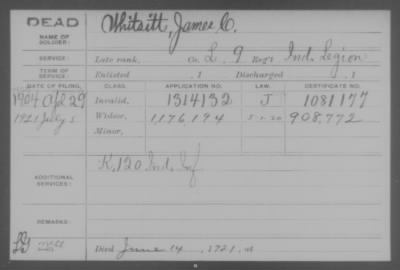 DEAD
NAME OF SOLDIER:
Whitsitt, James C.
SERVICE:
Late rank, Co. L. 9 Reg't Ind. Legion
TERM OF SERVICE:
Enlisted , 1 Discharged , 1
DATE OF FILING. CLASS. APPLICATION NO. LAW. CERTIFICATE NO.
1904 Apl 29 Invalid, 1314132 J 1081177
1921 July 5 Widow, 1,176,194 5-1-20 908,772
Minor,
ADDITIONAL SERVICES:
K. 120 Ind. Inf
REMARKS:
Died June 14, 1921, at